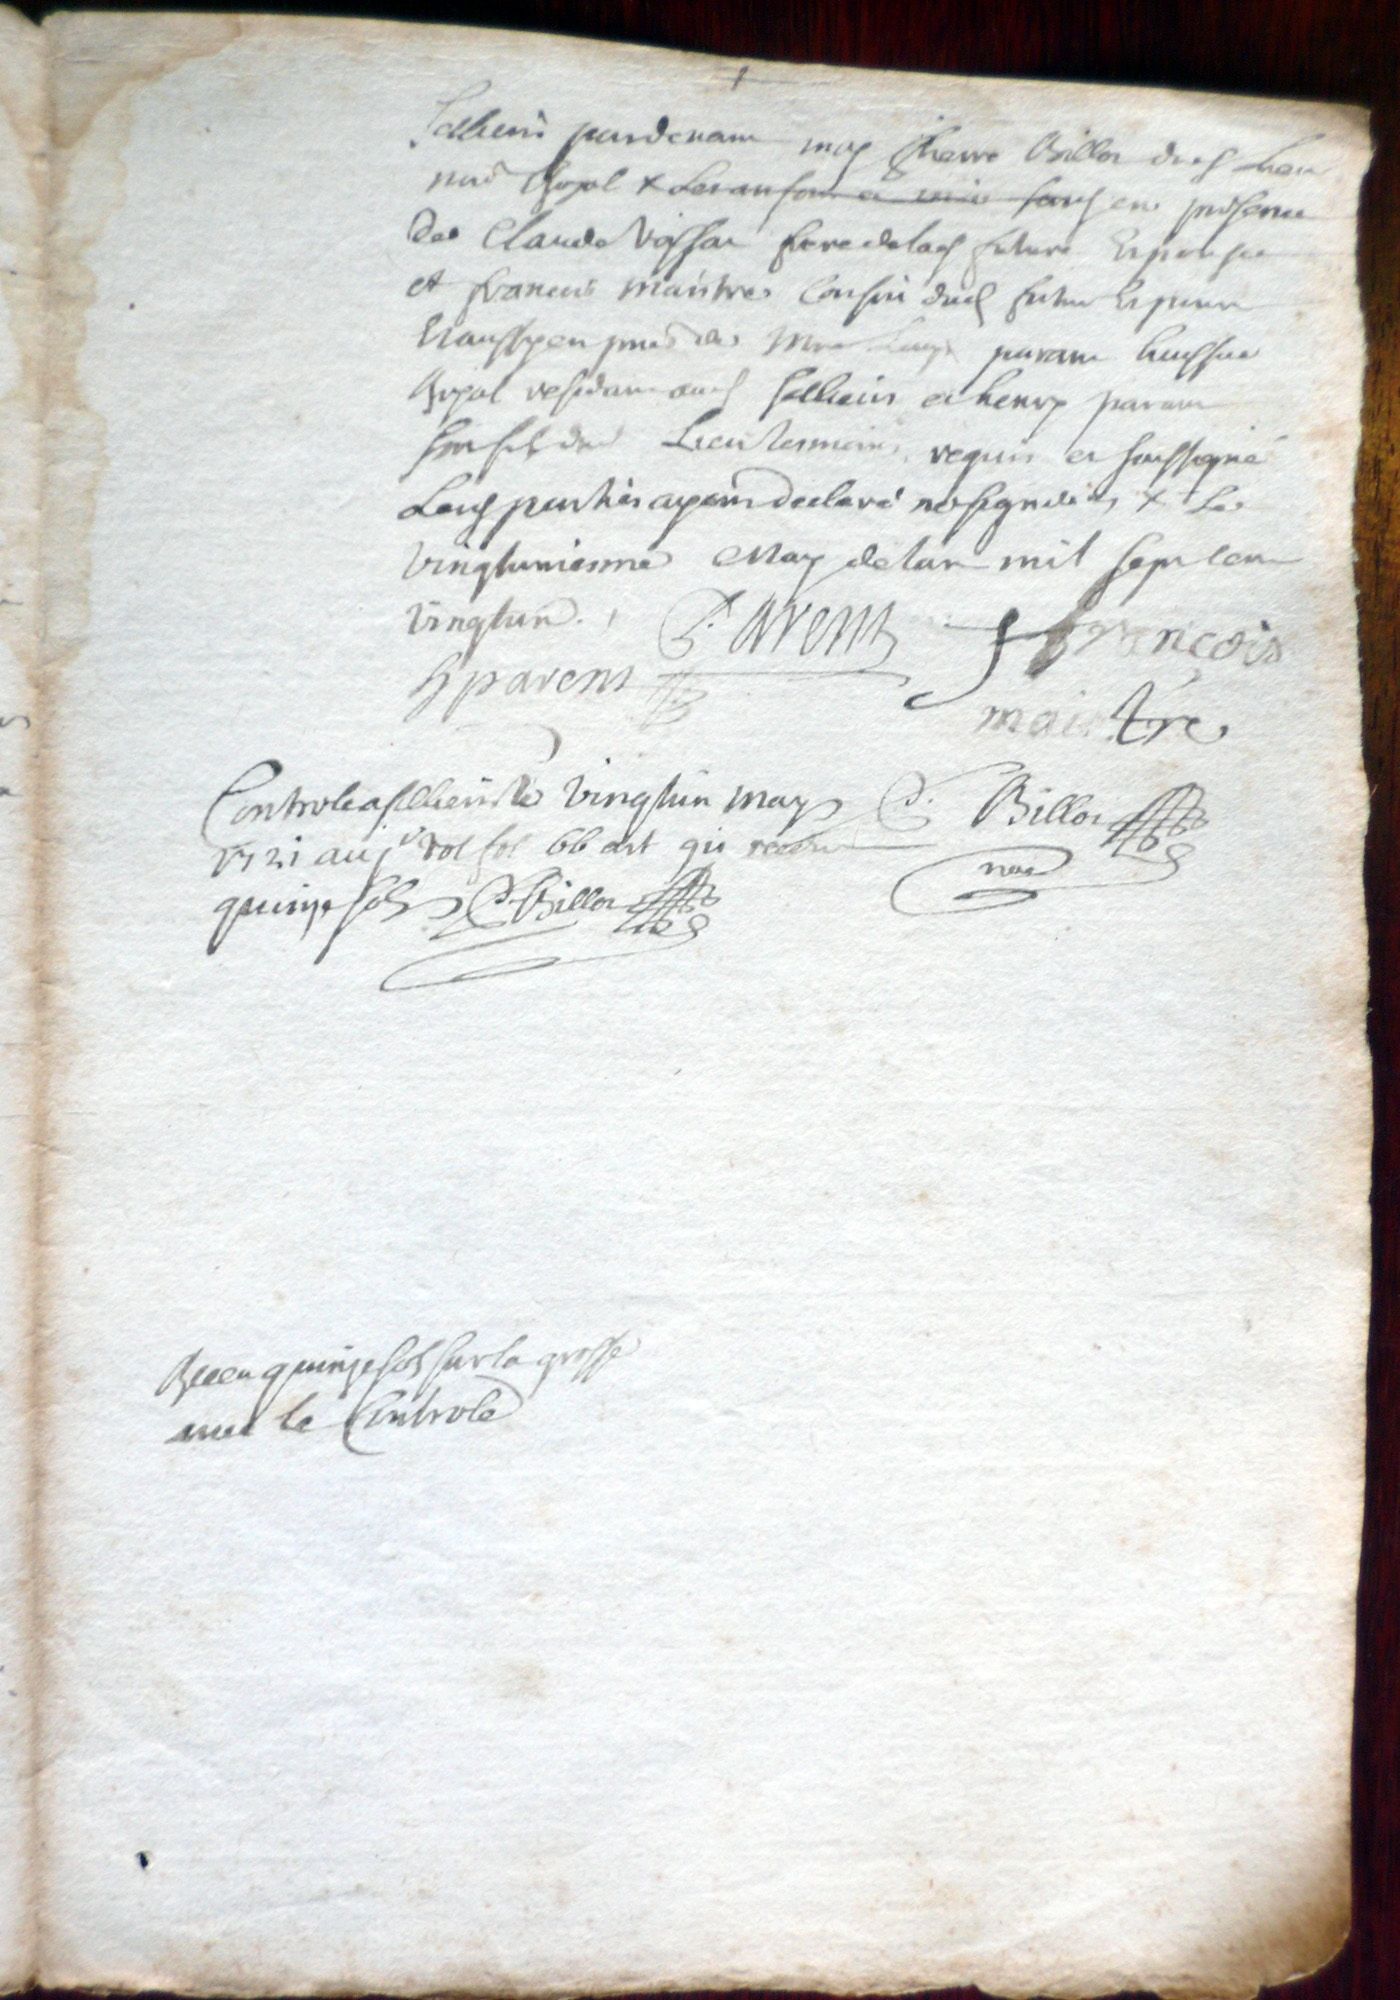 Sellieris pardevant moy Pierre Billot dud lieu
no.re Royal x en presence
De Claude Vissan frere de lad future Espouse
et francois maistre Cousin dud futur Espoux
Et aussy en pnce de Mre parant huissier
Royal residant aud Sellieres et henry parant
son fils dud Lieu tesmoins requis et soussigné
Lesd parties ayans declaré ne signer x Le
vingtuniesme May de lan mil sept cent
vingtun.
P. Parent
françois
hparent
maistre
Controlé a Sellieres le vingtun may
1721 au j.r vol fol 66 art gii receu
quinze sols P. Billot
P. Billot
nore
Receu quinze sols sur la grosse
avec le Controle